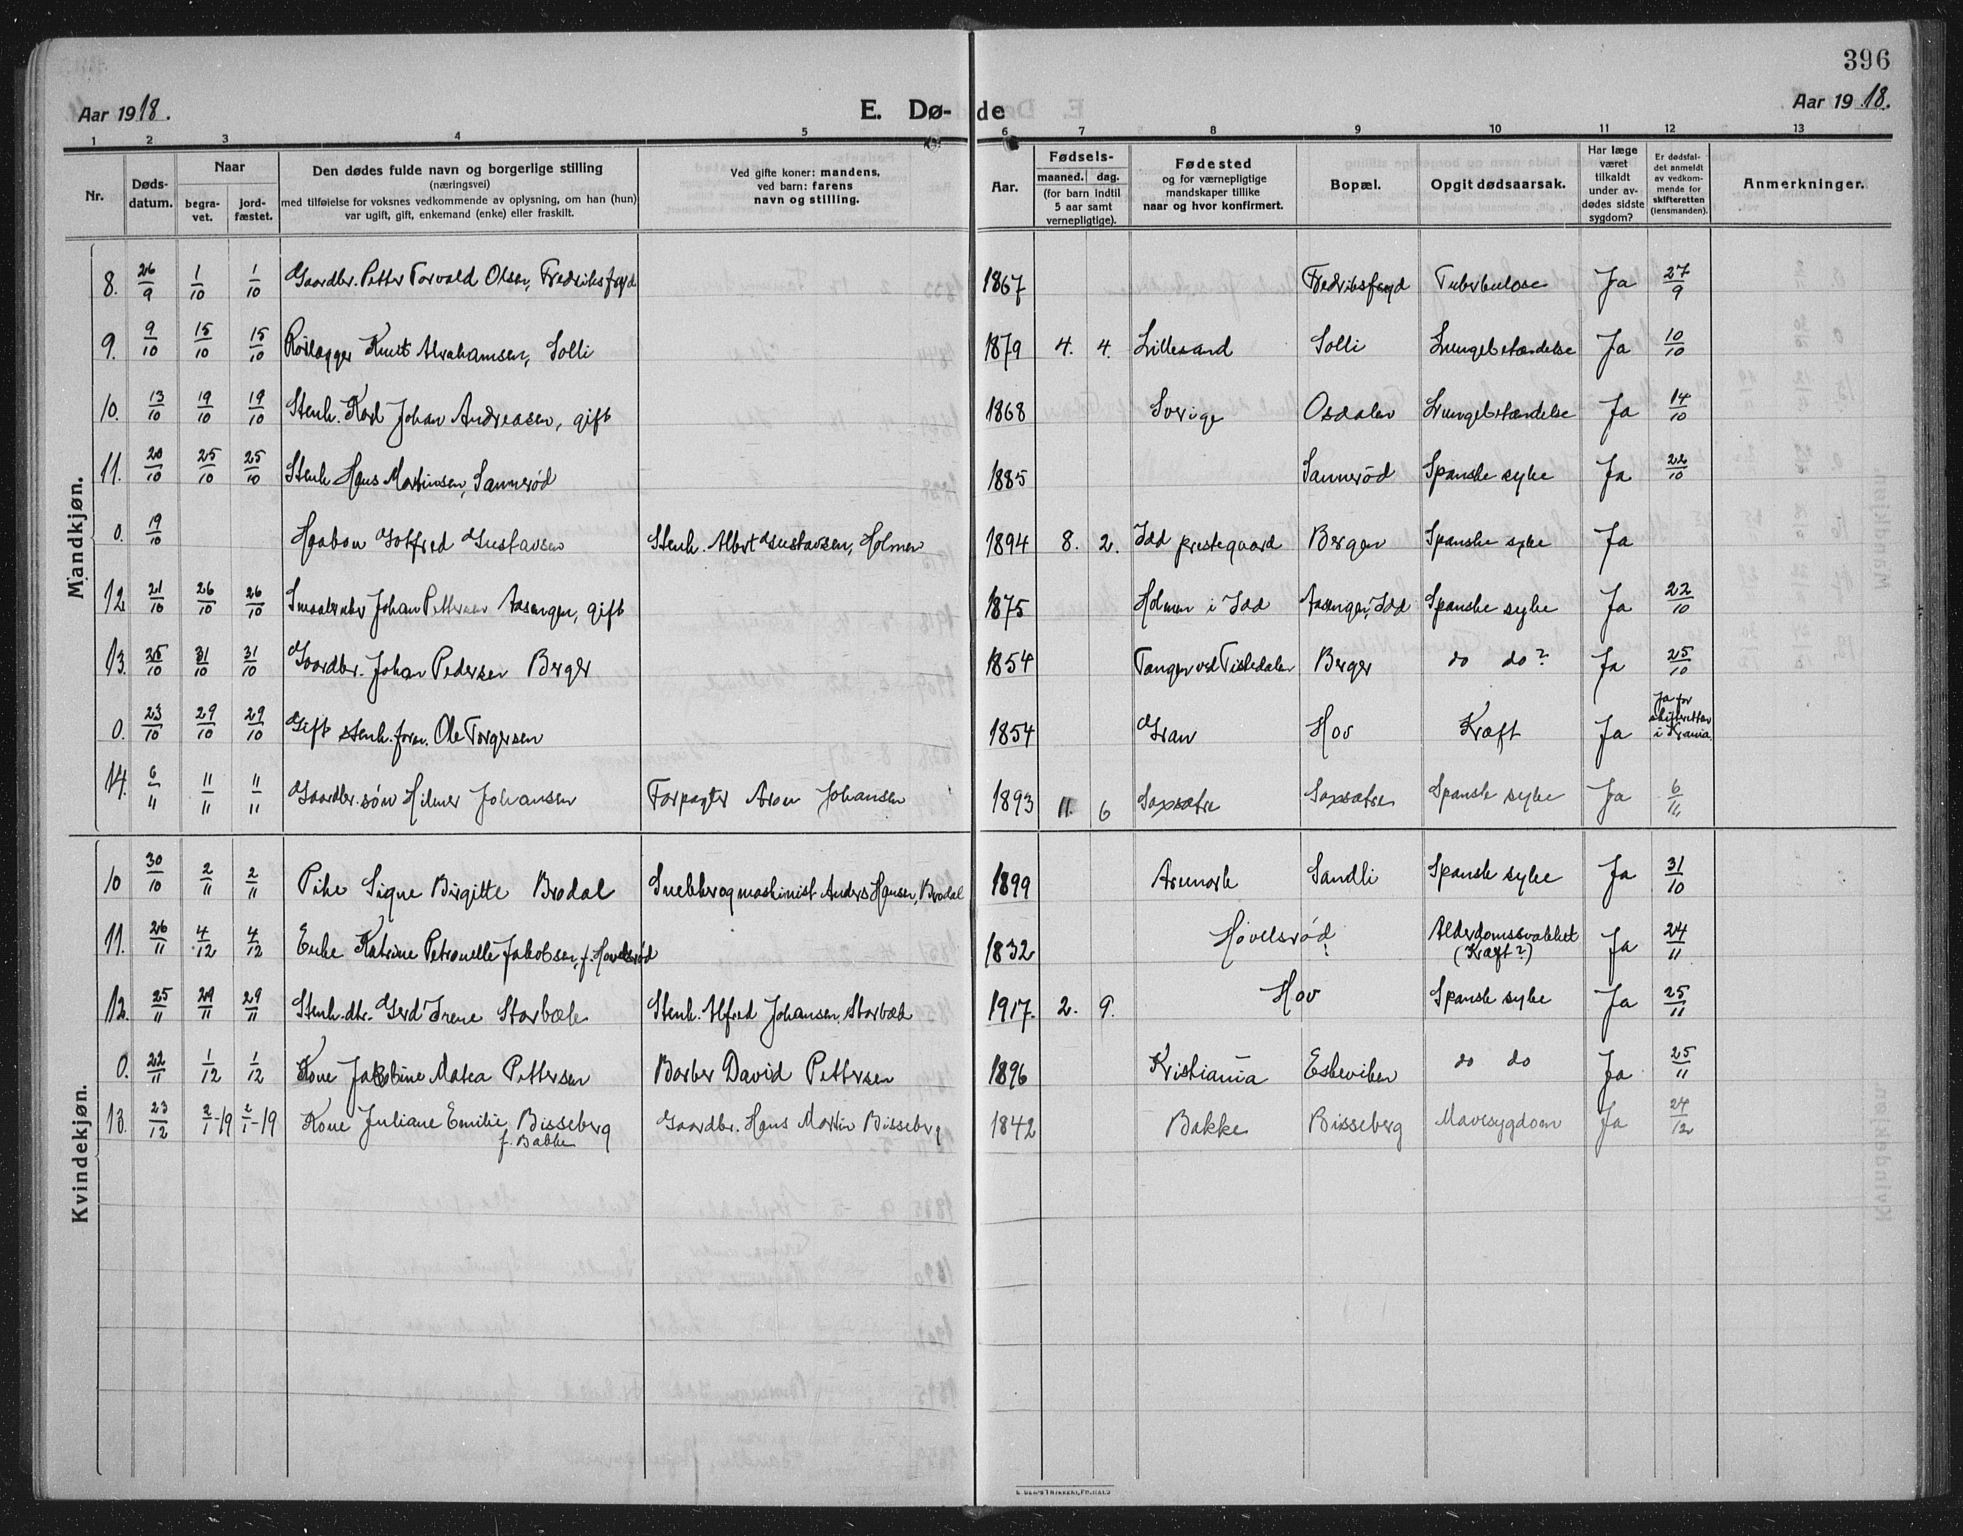 396
Aar 1918. E. Dø- de Aar 1918.
1 2 3 4 5 6 7 8 9 10 11 12 13
Nr. Døds-datum. Naar begra-vet. jord-fæstet. Den dødes fulde navn og borgerlige stilling (næringsvei) med tilføielse for voksnes vedkommende av oplysning, om han (hun) var ugift, gift, enkemand (enke) eller fraskilt. Ved gifte koner: mandens, ved barn: farens navn og stilling. Aar. Fødsels- maaned. dag. (for barn indtil 5 aar samt vernepligtige). Fødested og for værnepligtige mandskaper tillike naar og hvor konfirmert. Bopæl. Opgit dødsaarsak. Har læge været tilkaldt under av-dødes sidste sygdom? Er dødsfal-det anmeldt av vedkom-mende for skifteretten (lensmanden). Anmerkninger.
Mandkjøn.
8. 26/9 1/10 1/10 Gaardbr. Petter Torvald Olsen, Fredriksfryd 1867 Fredriksfryd Tuberkulose Ja 27/9
9. 9/10 15/10 15/10 Rørlægger Knut Abrahamsen, Solli 1879 4. 4. Lillesand Solli Lungebetændelse Ja 10/10
10. 13/10 19/10 19/10 Stenh. Karl Johan Andreasen, gift 1868 Sverige Osdalen Lungebetændelse Ja 14/10
11. 20/10 25/10 25/10 Stenh Hans Martinsen, Sannerød 1885 Sannerød Spanske syke Ja 22/10
0. 19/10 Haakon Gotfred Gustavsen Stenh. Albert Gustavsen, Holmen 1894 8. 2. Idd prestegaard Bergen Spanske syke Ja
12. 21/10 26/10 26/10 Smaabruker Johan Pettersen Aasengen, gift 1875 Holmen i Idd Aasengen, Idd Spanske syke Ja 22/10
13. 25/10 31/10 31/10 Gaardbr. Johan Pedersen Berger 1854 Tangen ved Tistedalen Berger do do? Ja 25/10
0. 23/10 29/10 29/10 Gift stenh. form. Ole Torgersen 1854 Gran Hov Kræft Ja Ja for skifteretten i Krania.
14. 6/11 11/11 11/11 Gaardbr. søn Hilmer Johansen Forpagter Aron Johansen 1893 11. 6 Saxsætre Saxsætre Spanske syke Ja 6/11
Kvindekjøn.
10 30/10 2/11 2/11 Pike Signe Birgitte Brodal Snekker og maskinist Anders Hansen, Brodal 1899 Aremark Sandli Spanske syke Ja 31/10
11. 26/11 4/12 4/12 Enke Katrine Petronelle Jakobsen, f. Hovelsrød 1832 Hovelsrød? Alderdomssvakhet (Kræft?) Ja 24/11
12. 25/11 29/11 29/11 Stenh. dtr. Gerd Irene Storbæk Stenh. Alfred Johansen, Storbæk 1917. 2. 9. Hov Spanske syke Ja 25/11
0. 22/11 1/12 1/12 Kone Jakobine Matea Pettersen Barber David Pettersen 1896 Kristiania Eskeviken do do Ja 25/11
13. 23/12 2/1-19 2/1-19 Kone Juliane Emilie Bisseberg f. Bakke Gaardbr. Hans Martin Bisseberg 1842 Bakke Bisseberg Mavesygdom Ja 24/12